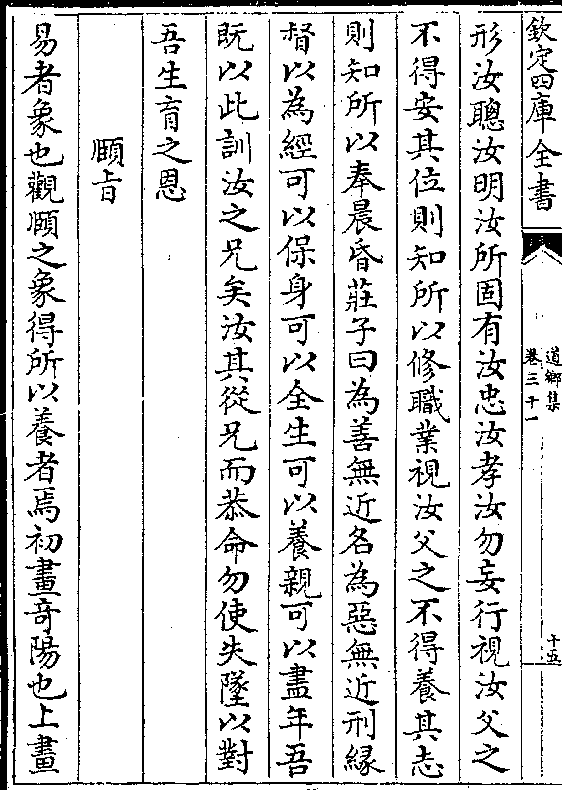 欽定四庫全書
道鄉集
卷三十一
十五
形汝聰汝明汝所固有汝忠汝孝汝勿妄行視汝父之
不得安其位則知所以修職業視汝父之不得養其志
則知所以奉晨昏莊子曰為善無近名為惡無近刑緣
督以為經可以保身可以全生可以養親可以盡年吾
既以此訓汝之兄矣汝其從兄而恭命勿使失墜以對
吾生育之恩
頤㫖
易者象也觀頤之象得所以養者焉初畫奇陽也上畫